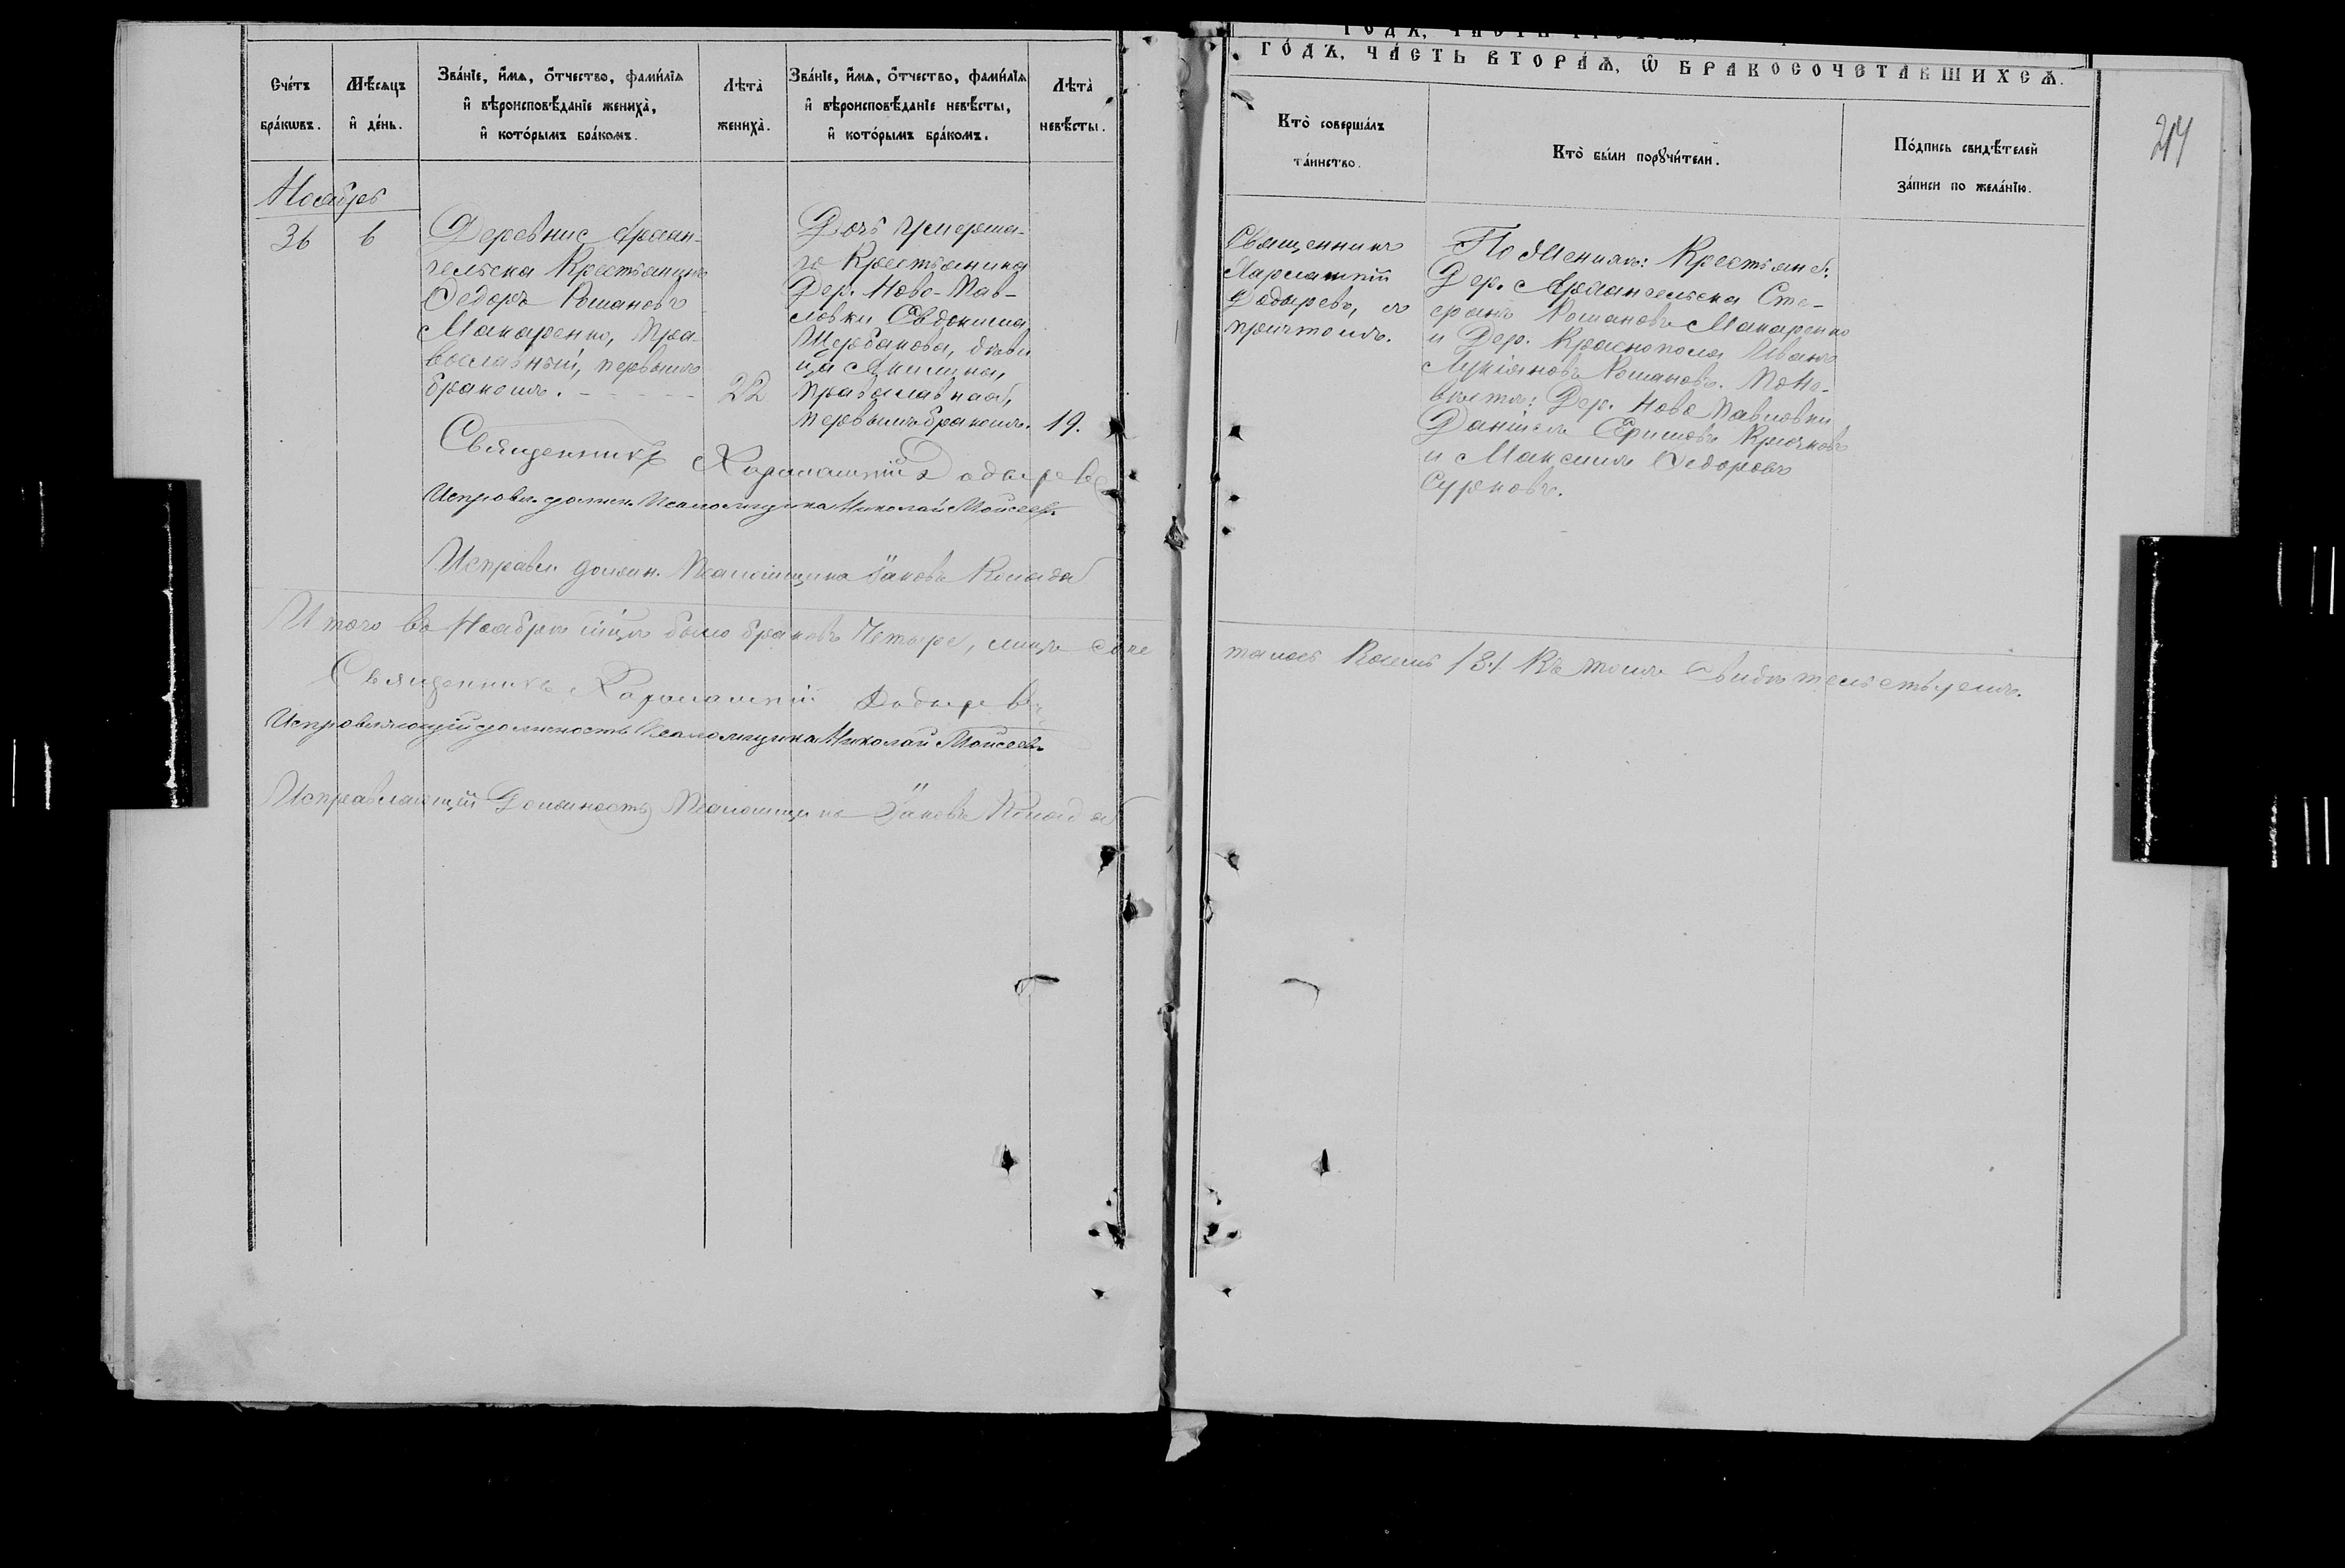 Сче́тъ бра́кѡвъ.
Мѣ́сяцъ и҆ де́нь.
Зва́нїе, и҆́мѧ, ѻ҆́тчество, фами́лїѧ
и҆ вѣроисповѣ́данїе жениха̀,
и҆ кото́рымъ бра́комъ.
Лѣта̀ жениха̀.
Зва́нїе, и҆́мѧ, ѻ҆́тчество, фами́лїѧ
и҆ вѣроисповѣ́данїе невѣ́сты,
и҆ кото́рымъ бра́комъ.
Лѣта̀ невѣ́сты.
Ноябрь
36
6
Деревни Архан-
гельска Крестьянинъ
Ѳедоръ Романовъ
Макаренко, Пра-
вославный, первымъ
бракомъ. - - - - -
22
Дочь Умерша-
го Крестьянина
Дер. Ново-Пав-
ловки Евдокима
Щербакова, дѣви
ца Акилина,
Православная,
первымъ бракомъ.
19.
Священникъ Харлампій Дадыревъ
Исправл. должн. Псаломщика Николай Моисеевъ
Исправл. должн. Псаломщика Іаковъ
Итого въ Ноябрѣ мцѣ было браковъ Четыре, лицъ соче
Священникъ Харлампій Дадыревъ
Исправляющій должность Псаломщика Николай Моисеевъ
Исправляющій Должность Псаломщика Іаковъ
ГО́ДЪ, ЧА́СТЬ ВТОРА́Ѧ, Ѡ҆ БРАКОСОЧЕТА́ВШИХСѦ.
214
Кто̀ соверша́лъ та́инство.
Кто̀ бы́ли порꙋчи́тели.
По́дпись свидѣ́телей за́писи по жела́нїю.
Священникъ
Харлампій
Дадыревъ, съ
причтомъ.
По Женихѣ: Крестьяне:
Дер. Архангельска Сте-
фанъ Романовъ Макаренко
и Дер. Краснополя Иванъ
Лукіановъ Романовъ. По Не-
вѣстѣ: Дер. Ново Павловки
Даніилъ Ефимовъ Крючковъ
и Максимъ Ѳедоровъ
Сурковъ.
талось Восемь /8./ Въ томъ Свидѣтельствуемъ.